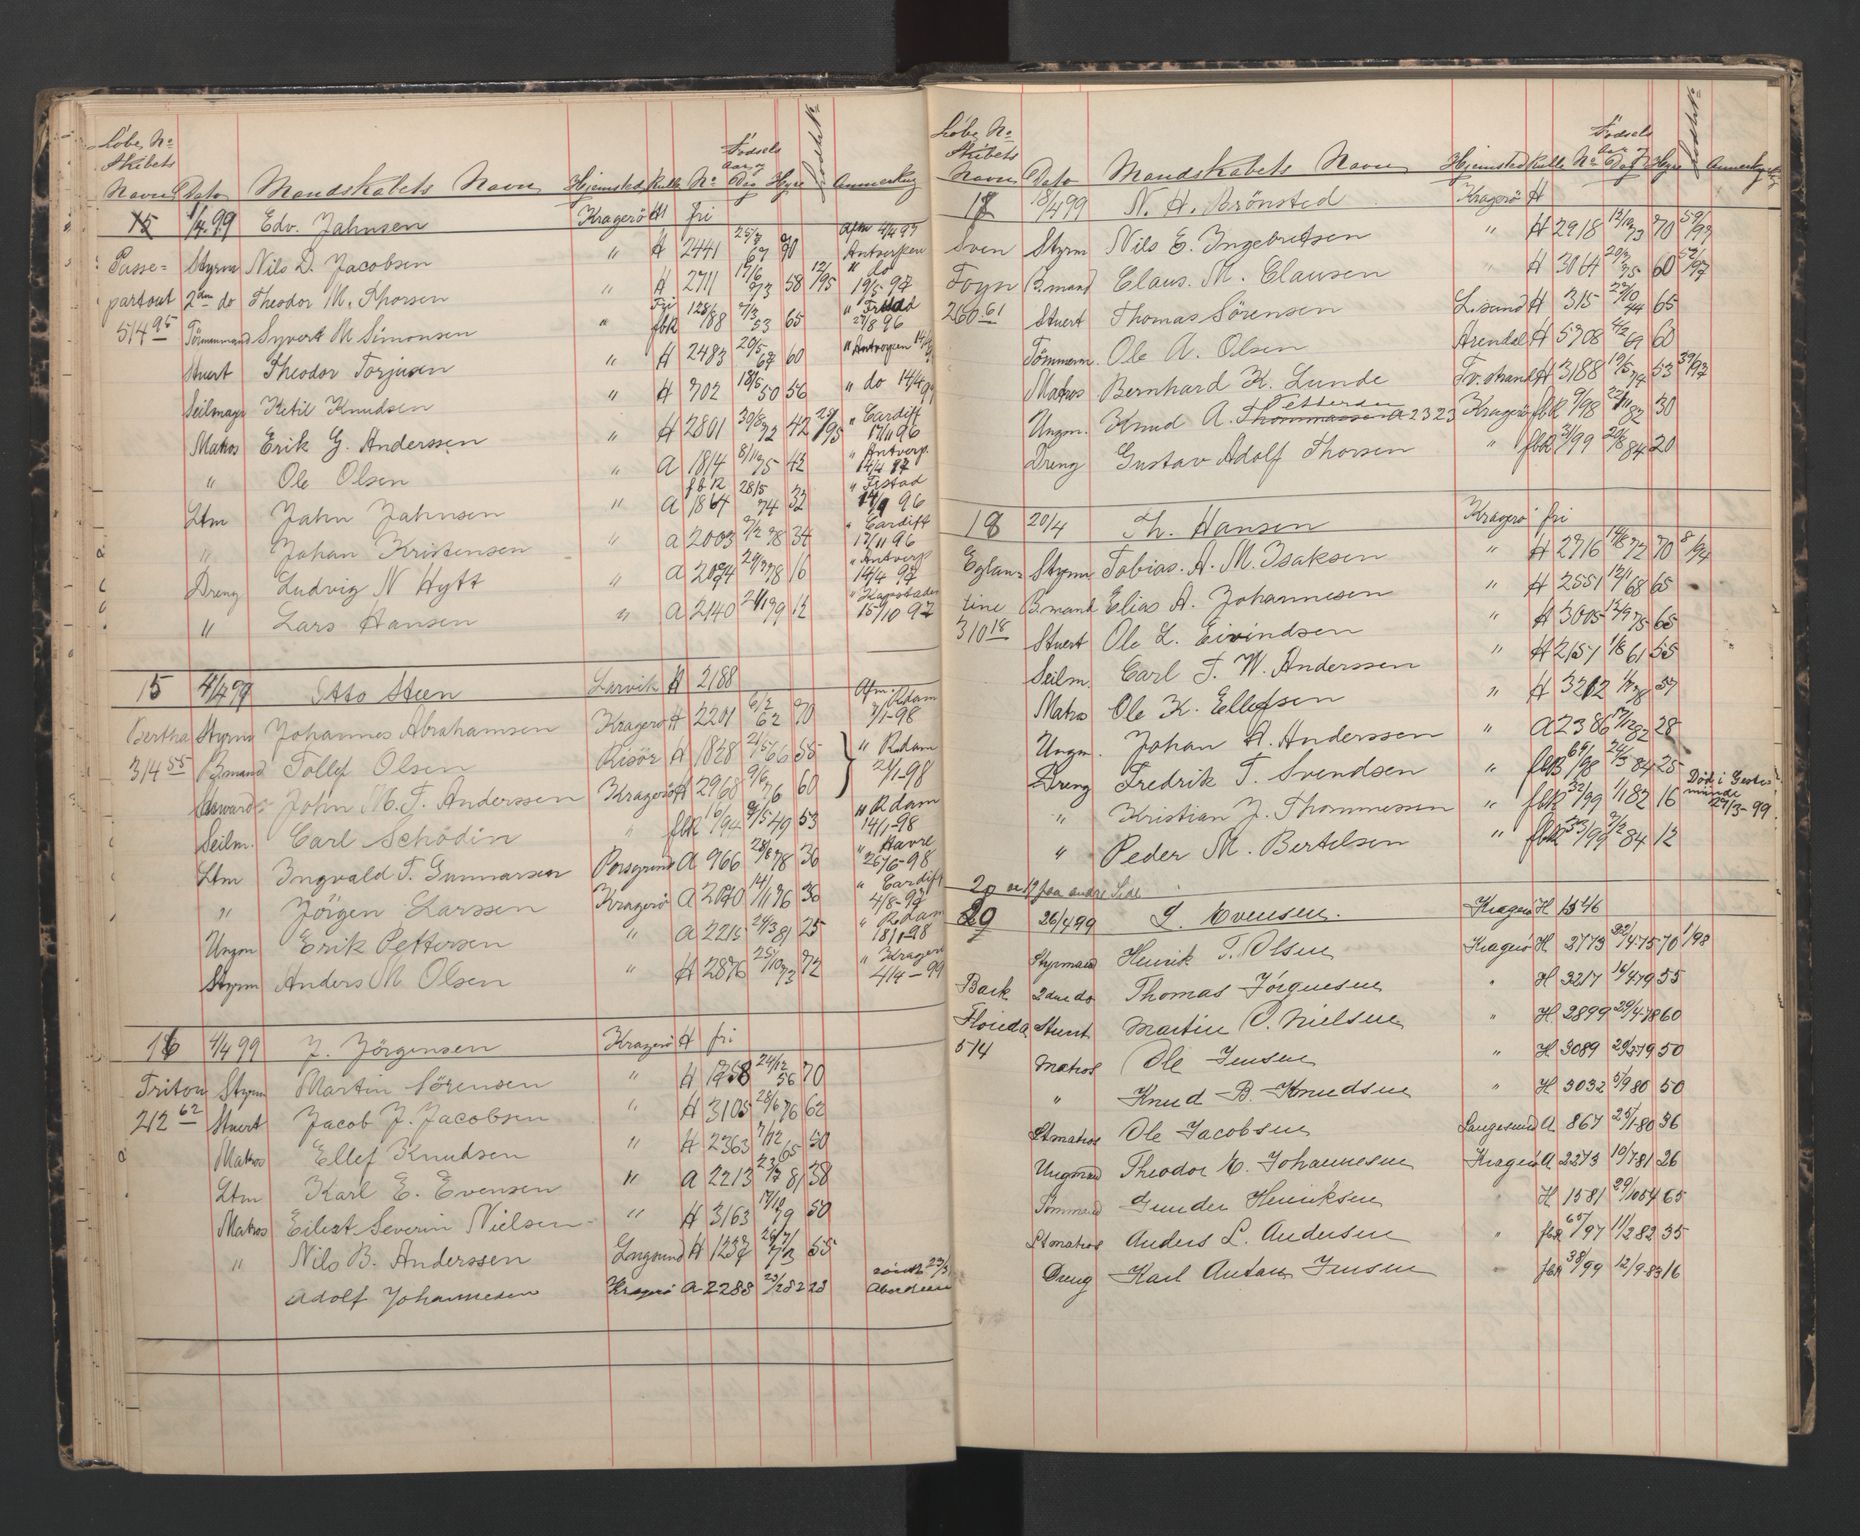 Løbe No
Skibets
Navn Dato Mandskabets Navn Hjemsted Rulle No Fødsels aar og Dag Hyre Anmerkning
15 1/4 99 Edv. Jahnsen Kragerö H fri
Passe= Styrm Nils D. Jacobsen " H 2441 67 90 Afm 4/4 97 Antverpen
partout 2den do Theodor M. Thorsen " H 2711 17/6 73 58 12/95 " do 19/5 97
514 95 Tömmermand Syvert M Simonsen " Fri fbR 128/88 7/3 53 65 27/8 96
Stuert Theodor Torjusen " H 2483 20/5 67 60 " Antverpen
Seilmager Ketil Knudsen " H 702 18/5 50 56 " do 14/4 97
Matros Erik G. Anderssen " H 2801 30/8 72 42 " Cardiff 17/11 96
" Ole Olsen " A 1814 8/11 75 42 " Antverp. 14/4 97
Ltm Jahn Jahnsen " fbR A 1864 28/5 74 32 96
" Johan Kristensen " A 2003 78 34 " Cardiff 17/11 96
Dreng Ludvig N Hytt " A 2074 78 16 " Antverp 14/4 97
" Lars Hansen " A 2140 79 12 15/10 97
15 4/4 97 Otto Steen Larvik H 2188
Bertha Styrm Johannes Abrahamsen Kragerö H 2201 6/2 62 70 Afm. Rdam 7/1-98
314 55 B.mand Tollef Olsen Risör H 1828 21/5 66 55 " Rdam 21/1-98
Steward John M. T. Anderssen Kragerö H 2968 9/6 76 60
Seilm. Carl Schödin " fbR 16/94 9/5 49 53 " Rdam 14/1-98
Ltm Ingvald T. Gunnarsen Porsgrund A 966 28/8 78 36 " Havre 26/6-98
" Jörgen Larssen Kragerö A 2070 14/11 76 36 " Cardiff 4/8-97
Ungm Erik Pettersen " A 2215 24/3 81 25 " Rdam 18/1-98
Styrm Anders M Olsen " H 2876 25/10 73 72 " Kragerö 4/4-99
16 4/4 99 J. Jörgensen Kragerö H fri
Triton Styrm Martin Sörensen " H 24/12 56 70
212 62 Stuert Jacob J. Jacobsen " H 3105 28/6 76 62
Matros Ellef Knudsen " H 2363 7/12 65 50
Ltm Karl E. Evensen " A 2213 81 38
Matros Eilert Severin Nielsen " H 3163 79 50
" Nils B. Anderssen Lngsund H 1237 73 55
Adolf Johannesen Kragerö A 2288 23/2 82 28 Aberdeen
Løbe No
Skibets
Navn Dato Mandskabets Navn Hjemsted Rulle No Fødsels aar og Dag Hyre Anmerkning
17 18/4 99 N. H. Brönsted Kragerö H
Sven Styrm Nils E. Ingebretsen " H 2918 12/12 73 70 59/97
Foyn B.mand Claus. M. Clausen " H 3064 20/7 75 60 52/97
260 61 Stuert Thomas Sörensen L.sund H 315 27/10 44 65
Tömmerm. Ole A. Olsen Arendal H 5708 69 60
Matros Bernhard K. Lunde Tv.strand H 3188 19/5 74 53 39/97
Ungm. Knud A. Thommassen Petterden A 2323 Kragerö fbR 9/98 22/11 82 30
Dreng Gustav Adolf Thorsen " fbR 31/99 20/8 84 20
18 20/4 Th. Hansen Kragerö fri
Eglan= Styrm Tobias. A. M. Isaksen " H 2716 14/8 72 70 8/94
tine B.mand Elias A. Johannesen " H 2551 12/1 68 65
310 18 Stuert Ole L. Eivindsen " H 3005 12/9 75 65
Seilm. Carl F. W. Anderssen " H 2157 1/8 61 55
Matros Ole K. Ellefsen " H 3212 78 57
Ungm. Johan A. Anderssen " A 2386 17/12 82 28
Dreng Fredrik T. Svendsen " fbR 64/98 24/3 84 25
" Kristian J. Thommessen " fbR 32/99 1/11 82 16 Död i Geste münde 29/3-99
" Peder M. Bertelsen " fbR 33/99 7/2 84 12
20 se 19 paa andre Side
20 26/4 99 L. Evensen. Kragerö H 1546
Styrmand Henrik T. Olsen Kragerö H 2773 22/4 75 70 1/98
Bark 2den do Thomas Jörgensen " H 3217 16/4 79 55
Florida Stuert Martin O. Nielsen " H 2899 29/4 78 60
514 Matros Ole Jensen " H 3089 20/3 79 50
" Knud B. Knudsen " H 3032 5/9 80 50
Ltmatros Ole Jacobsen Langesund A 867 25/1-80 36
Ungmand Theodor E. Johannesen Kragerö A 2273 19/7 81 26
Tömmerm Gunder Henriksen " H 1581 29/10 54 65
Ltmatros Anders L. Andersen " fbR 65/97 11/2 82 35
Dreng Karl Anton Jensen " fbR 38/99 12/9-83 16